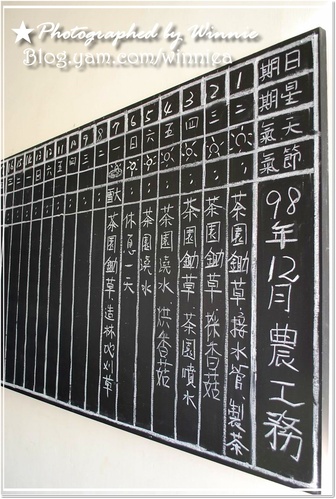 ★Photographed by Winnie
Blog.yam.com/winnica
日期
星期
天氣
節氣
98年12月農工務
1 二 : 茶園鋤草.接水管.製茶
2 三 : 茶園鋤草.採香菇
3 四 : 茶園鋤草.茶園噴水
4 五 : 茶園澆水 烘香菇
5 六 : 茶園澆水
6 日 : 休息一天
7 一 大雪 茶園鋤草.造林地刈草
8 二 :
9 三 :
10 四 :
11 五 :
12 六 :
13 日 :
14 一 :